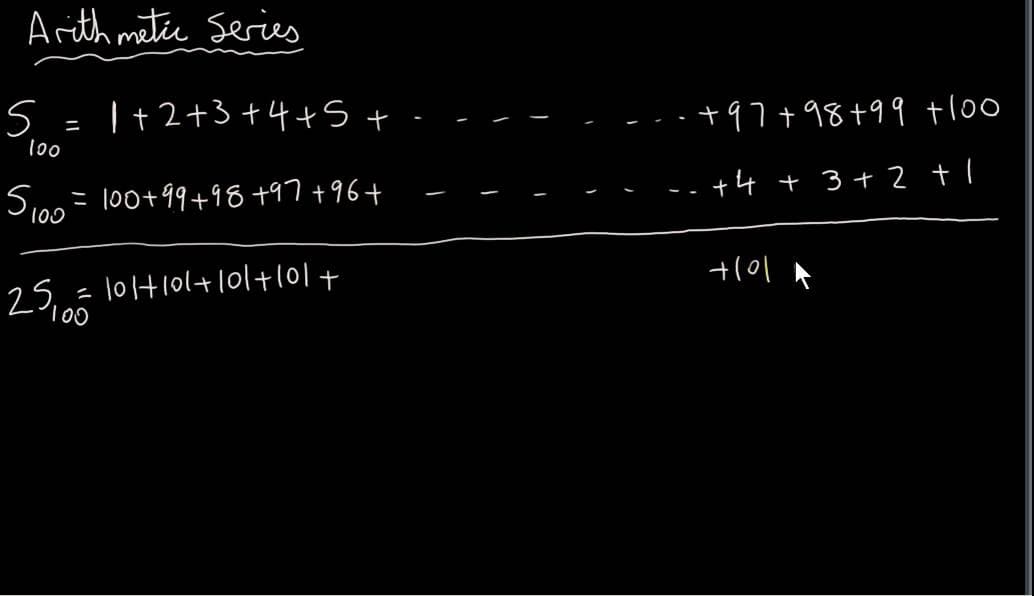 Arithmetic Series
S100 = 1 + 2 + 3 + 4 + 5 + · - - - - - - - · · · + 97 + 98 + 99 + 100
S100 = 100 + 99 + 98 + 97 + 96 + - - - - - · · + 4 + 3 + 2 + 1
2S100 = 101 + 101 + 101 + 101 + + 101